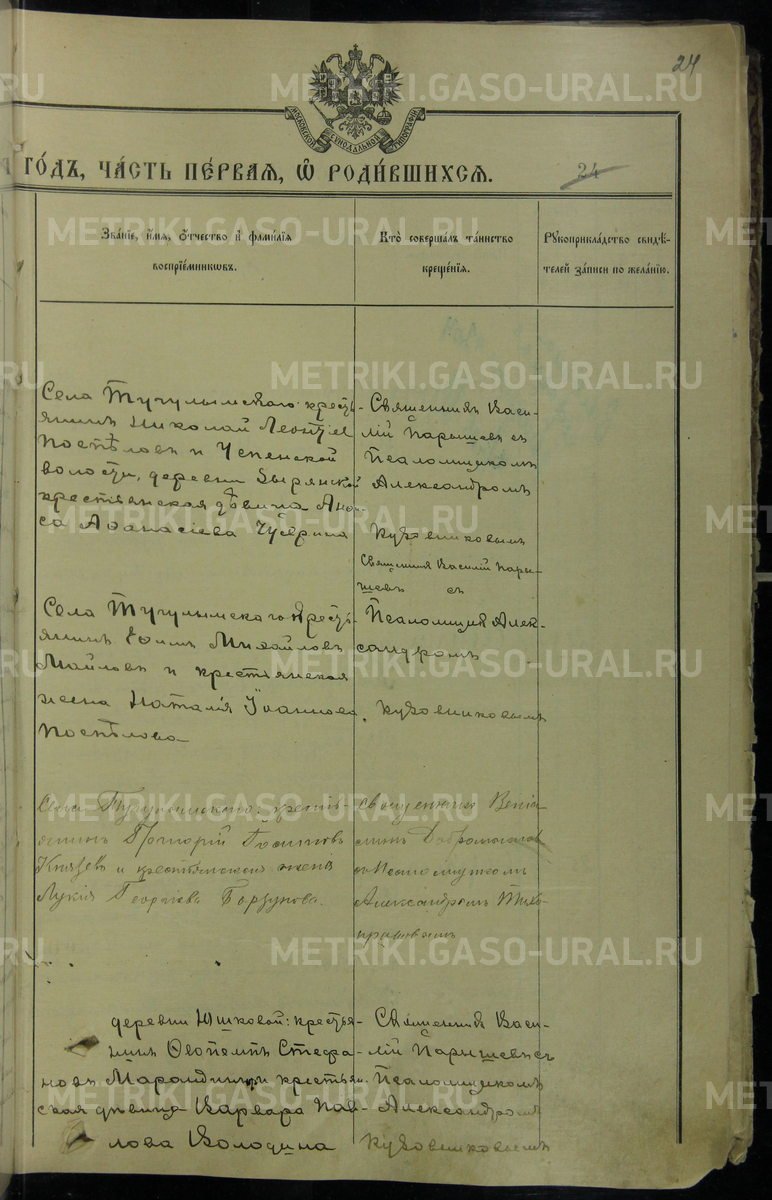 24
МОСКОВСКОЙ СѴНОДАЛЬНОЙ ТИПОГРАФІИ
ГО́ДЪ, ЧА́СТЬ ПЕ́РВАЯ, Ѡ҆ РОДИ́ВШИХСЯ.
24
Зва́нїе, и҆́мя, ѻ҆́тчество и҆ фами́лїя
воспрїе́мникѡвъ.
Кто̀ соверша́лъ та́инство
креще́нїя.
Рꙋкоприкла́дство свидѣ́-
телей за́писи по жела́нїю.
Села Тугулымскаго: кресть-
янинъ Николай Леонтіев
Поспѣловъ и Успенской
волости, деревни Зырянской
крестьянская дѣвица Анф-
са Аѳанасіева Чуврина
Священникъ Васи-
лій Парышевъ съ
Псаломщикомъ
Александромъ
Кузовниковымъ
Села Тугулымскаго кресть-
янинъ Ѳома Михайловъ
Майловъ и крестьянская
жена Наталія Іоаннова
Поспѣлова
Священникъ Василій Пары-
шевъ съ
Псаломщик Алек-
сандромъ
Кузовниковымъ
Села Тугулымскаго: кресть-
янинъ Григорій
Князевъ и крестьянская жена
Лукія Георгіева Борзунова.
Священникъ Веніа
минъ
съ Псаломщикомъ
Александромъ Тихо-
нравовымъ
деревни Юшковой: крестья-
нинъ Ѳеопемптъ Стефа-
новъ Марандинъ и крестьян-
ская дѣвица Варвара Пав-
лова Володина
Священникъ Васи-
лій Парышевъ съ
Псаломщикомъ
Александромъ
Кузовниковымъ
METRIKI.GASO-URAL.RU